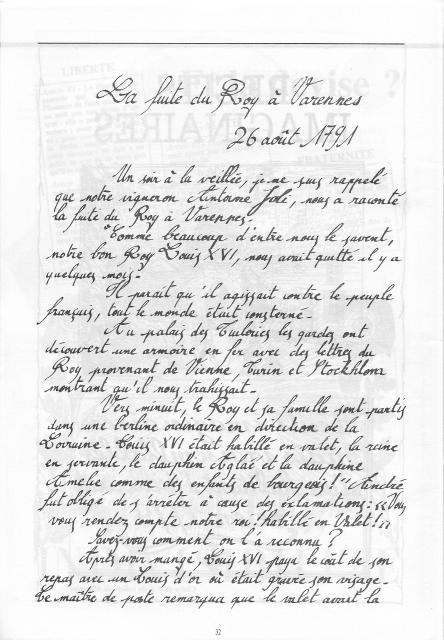 La fuite du Roy à Varennes
26 août 1791
Un soir à la veillée, je me suis rappelé
que notre vigneron Antoine Jolé, nous a raconté
la fuite du Roy à Varennes.
"Comme beaucoup d'entre nous le savent,
notre bon Roy Louis XVI, nous avait quitté il y a
quelques mois.
Il parait qu'il agissait contre le peuple
français, tout le monde était consterné.
Au palais des Tuileries les gardes ont
découvert une armoire en fer avec des lettres du
Roy provenant de Vienne, Turin et Stockholm
montrant qu'il nous trahissait.
Vers minuit, le Roy et sa famille sont partis
dans une berline ordinaire en direction de la
Lorraine. Louis XVI était habillé en valet, la reine
en servante, le dauphin Aglaé et la dauphine
Amelie comme des enfants de bourgeois!" André
fut obligé de s'arrêter à cause des exclamations: «Vous
vous rendez compte notre roi! habillé en Valet!»
Savez-vous comment on l'a reconnu?
Après avoir mangé, Louis XVI paya le coût de son
repas avec un Louis d'or où était gravée son visage.
Le maître de poste remarqua que le valet avait la
32
LIBERTÉ
FRATERNITÉ
IMAGINAIRES